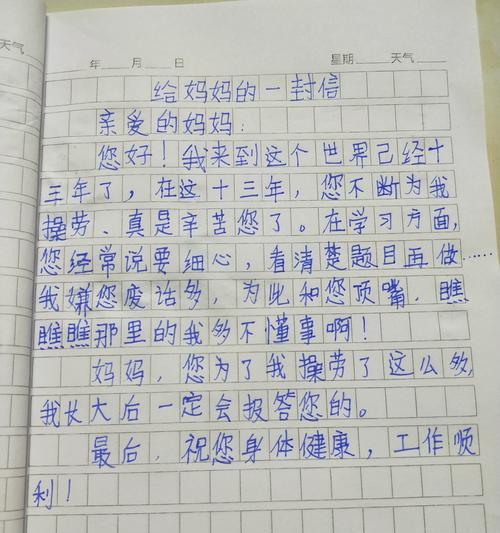 天气
年 月 日 星期 天气
给妈妈的一封信
亲爱的妈妈:
您好!我来到这个世界已经十
三年了,在这十三年,您不断为我
操劳、真是辛苦您了。在学习方面,
您经常说要细心,看清楚题目再做…
我嫌您废话多,为此和您顶嘴.瞧
瞧瞧那里的我多不懂事啊!
妈妈,您为了我操劳了这么多,
我长大后一定会报答您的。
最后,祝您身体健康,工作顺
利!